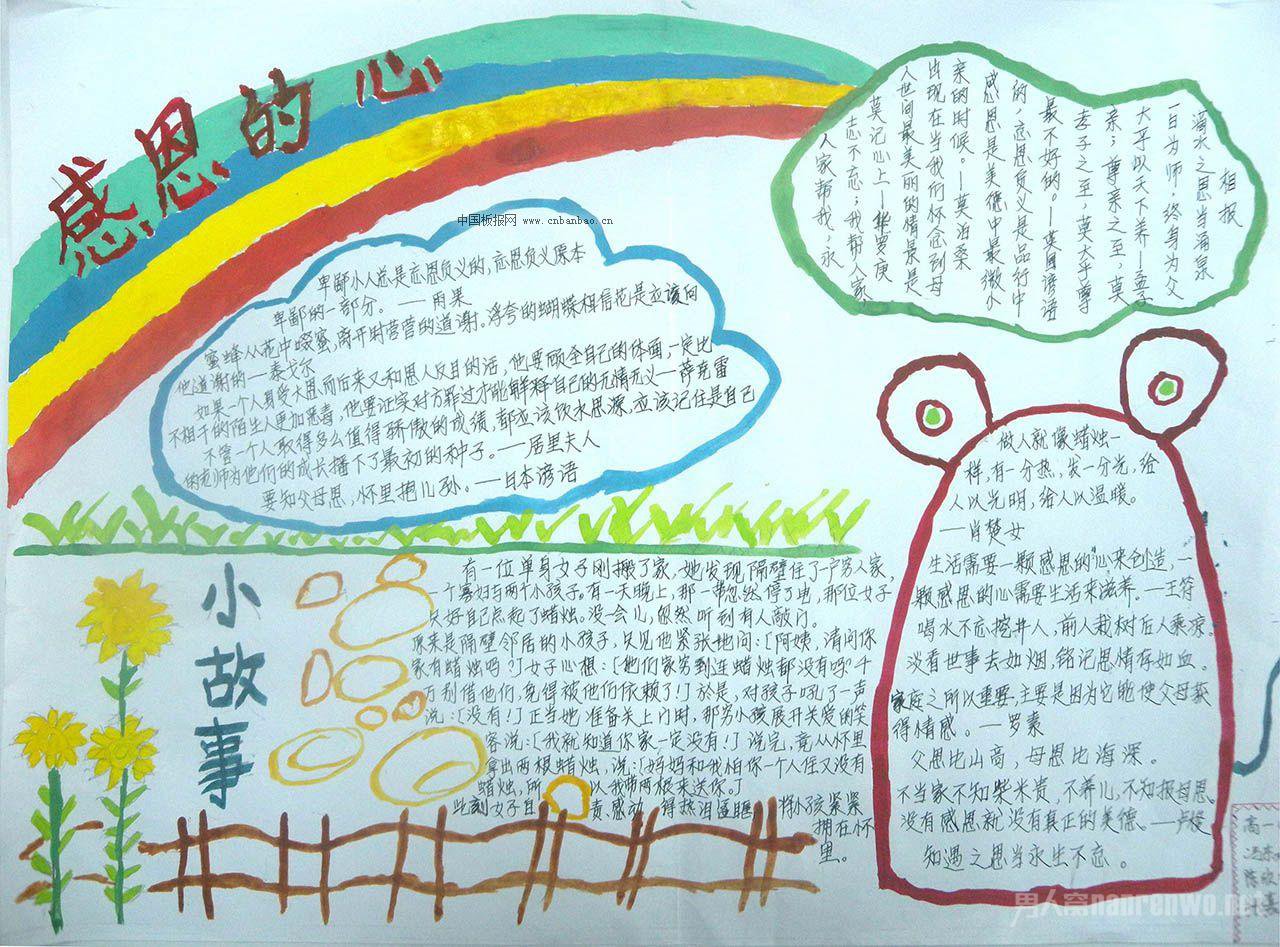 感恩的心
中国板报网 www.cnbanbao.cn
卑鄙小人总是忘恩负义的,忘恩负义原本
卑鄙的一部分。——雨果
蜜蜂从花中啜蜜,离开时营营的道谢。浮夸的蝴蝶相信花是应该向
他道谢的——泰戈尔
如果一个人身受大恩而后来又和恩人反目的话,他要顾全自己的体面,一定比
不相干的陌生人更加恶毒,他要证实对方罪过才能解释自己的无情无义——萨克雷
不管一个人取得多么值得骄傲的成绩,都应该饮水思源,应该记住是自己
的老师为他们的成长播下了最初的种子。——居里夫人
要知父母恩,怀里抱儿孙。——日本谚语
相报
滴水之恩当涌泉
一日为师,终身为父
大乎以天下养——孟子
亲;尊亲之至,莫
孝子之至,莫大乎尊
最不好的。——英国谚语
的,忘恩负义是品行中
感恩是美德中最微小
亲的时候。——莫泊桑
出现在当我们怀念到母
人世间最美丽的情景是
莫记心上——华罗庚
志不忘;我帮人家
人家帮我,永
做人就像蜡烛一
样,有一分热,发一分光,给
人以光明,给人以温暖。
——肖楚女
生活需要一颗感恩的心来创造,一
颗感恩的心需要生活来滋养。——王符
喝水不忘挖井人,前人栽树后人乘凉。
淡看世事去如烟,铭记恩情存如血。
家庭之所以重要,主要是因为它能使父母获
得情感。——罗素
父恩比山高,母恩比海深。
不当家不知柴米贵,不养儿,不知报母恩。
没有感恩就没有真正的美德。——卢梭
知遇之恩当永生不忘。
小故事
有一位单身女子刚搬了家,她发现隔壁住了一户穷人家,
一个寡妇与两个小孩子。有一天晚上,那一带忽然停了电,那位女子
只好自己点起了蜡烛。没一会儿,忽然听到有人敲门。
原来是隔壁邻居的小孩子,只见他紧张地问:「阿姨,请问你
家有蜡烛吗?」女子心想:「他们家穷到连蜡烛都没有吗?千
万别借他们,免得被他们依赖了!」於是,对孩子吼了一声
说:「没有!」正当她准备关上门时,那穷小孩展开关爱的笑
容说:「我就知道你家一定没有!」说完,竟从怀里
拿出两根蜡烛,说:「妈妈和我怕你一个人住又没有
蜡烛,所以我带两根来送你。」
此刻女子自责感动得热泪盈眶,将小孩紧紧
拥在怀
里。
高一
男人窝nanrenwo.net